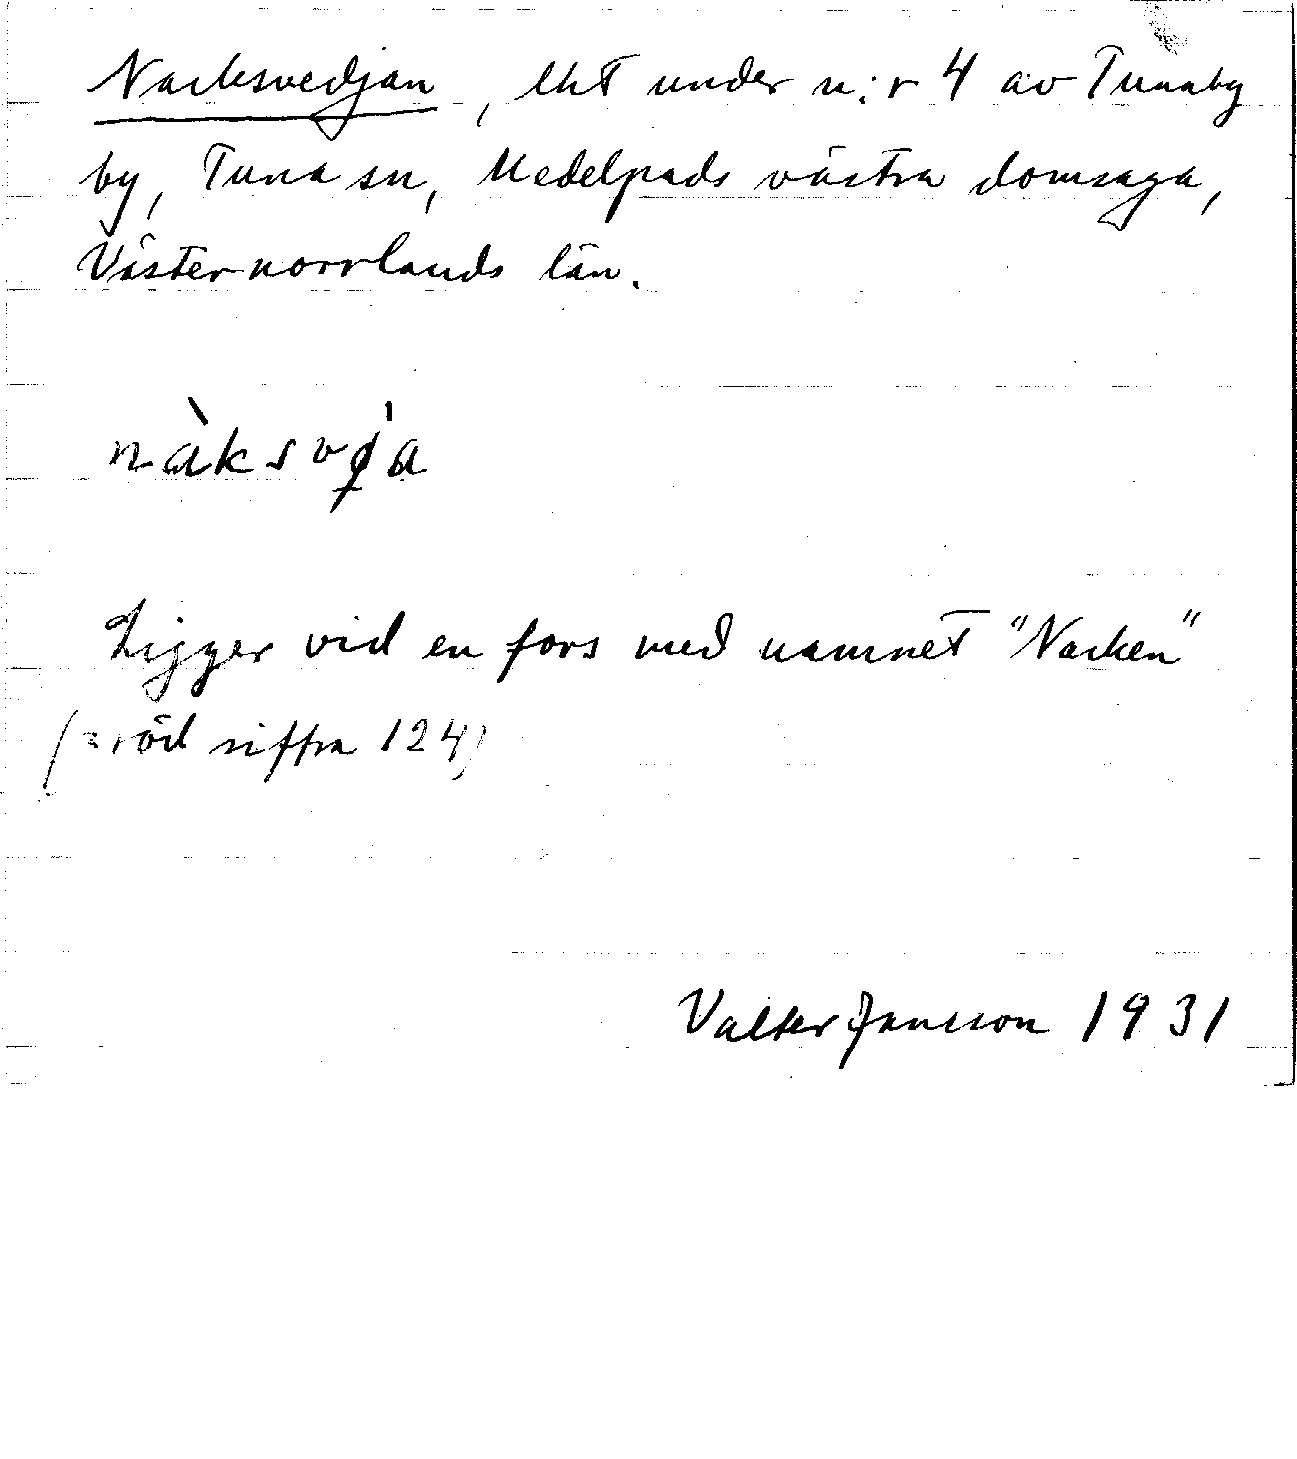 Nacksvedjan, lht under n:r 4 av Tunaby
by, Tuna sn, Medelpads västra domsaga,
Västernorrlands län.
Ligger vid en fors med namnet "Nacken"
(= röd siffra 124)
Valter Jansson 1931